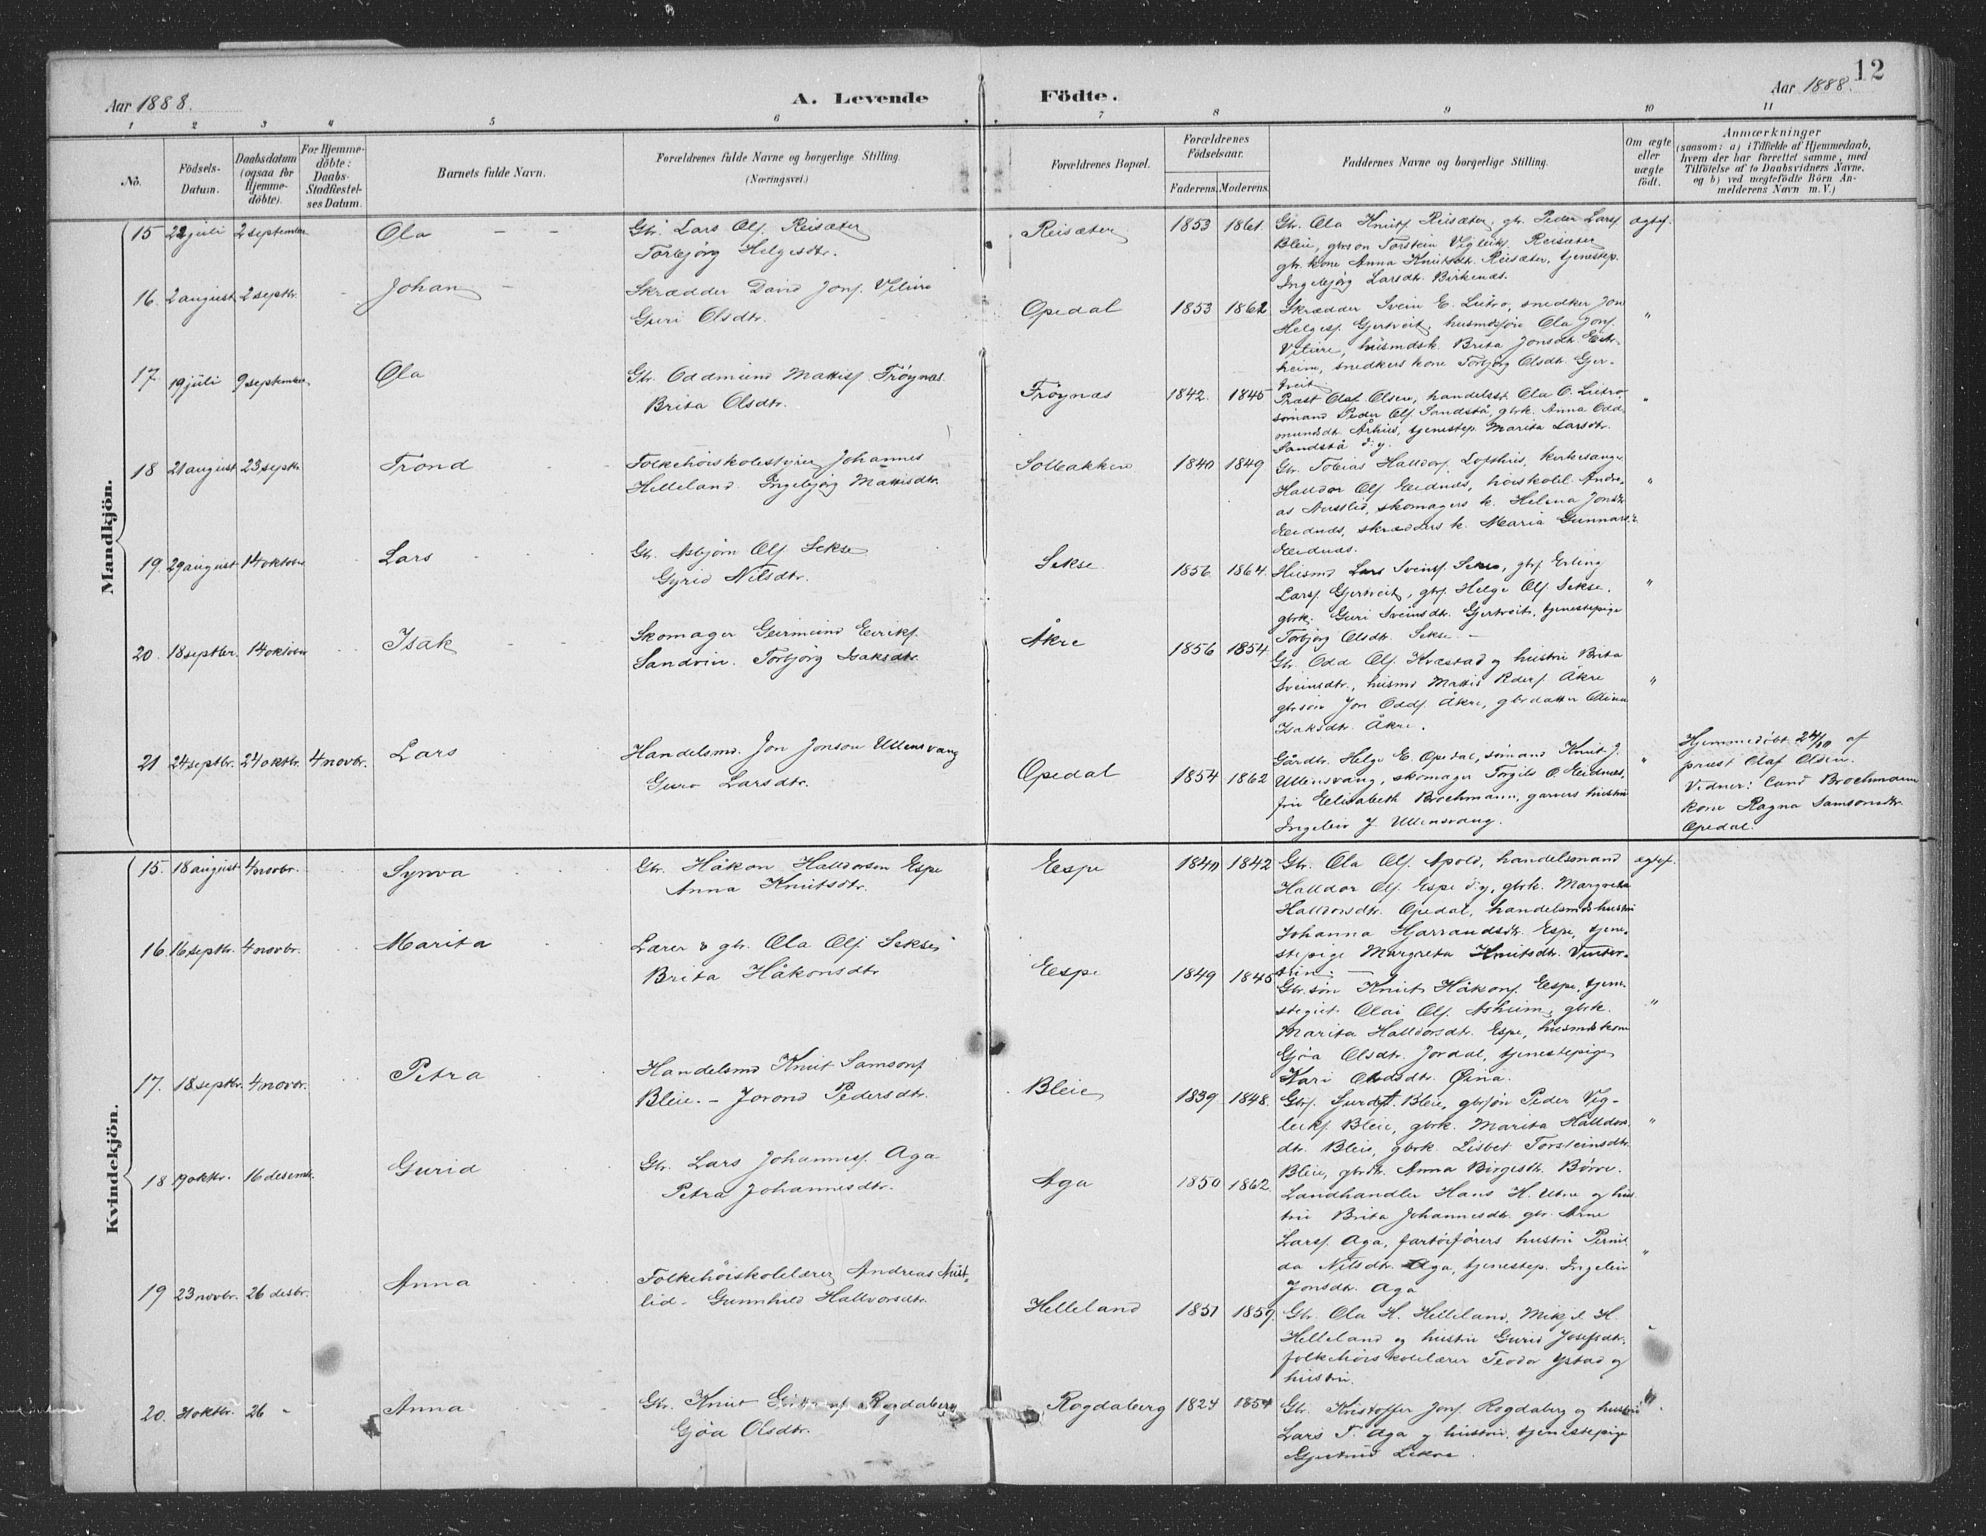 12
Aar 1888.
A. Levende
Födte.
Aar 1888.
1 2 3 4 5 6 7 8 9 10 11
No.
Födsels-Datum.
Daabsdatum (ogsaa for Hjemme-döbte).
For Hjemme-döbte: Daabs-Stadfæstel-ses Datum.
Barnets fulde Navn.
Forældrenes fulde Navne og borgerlige Stilling.
(Næringsvei.)
Forældrenes Bopæl.
Forældrenes Födselsaar.
Faderens. Moderens.
Faddernes Navne og borgerlige Stilling.
Om ægte eller uægte födt.
Anmærkninger
(saasom: a) i Tilfælde af Hjemmedaab, hvem der har forrettet samme, med Tilföielse af to Daabsvidners Navne, og b) ved uægtefödte Börn An-melderens Navn m. V.)
Mandkjön.
15 22 juli 2 september Ola
Gbr. Lars Olss. Reisæter
Torbjörg Helgesdtr.
Reisæter 1853 1861.
Gbr. Ola Knutss. Reisæter, gbr. Peder Larss.
Bleie, gbrson Torstein Vigleiks. Reisæter
gbr. kone Anna Knutsdtr. Reisæter, tjenestep.
Ingebjörg Larsdtr. Birkenes.
ægtef.
16. 2 august 2 septbr. Johan
Skrædder David Jons. Velure
Guri Olsdtr.
Opedal 1853 1862
Skrædder Svein E. Lutro, snedker Jon
Helges. Gjertveit, husmdssön Ola Jons.
Velure, husmdsk. Brita Jonsdtr. Eitr-
heim, snedkers kone Torbjörg Olsdtr. Gjer-
tveit
"
17. 19 juli 9 september Ola
Gbr. Oddmund Mattiss. Fröynæs
Brita Olsdtr.
Fröynæs 1842. 1845
Præst Olaf Olsen, handelsst. Ola O. Lutro
sömand Peder Ols. Sandstå, gbrk. Anna Odd-
mundsdtr. Århus, tjenestep. Marita Larsdtr.
Sandstå d.y.
"
18 21 august 23 septbr. Trond
Folkehöiskolestyrer Johannes
Helleland. Ingebjörg Mattisdtr.
Solbakken 1840 1849
Gbr. Tobias Halldors. Lofthus, kirkesanger
Halldor Ols. Eidnæs, höiskolel. Andre-
as Austlid, skomagers k. Helena Jonsdtr
Eidnæs, skrædders k. Maria Gunnars.
Eidnæs.
"
19. 29 august 14 oktober Lars
Gbr. Asbjörn Ols. Sekse
Gyrid Nilsdtr.
Sekse 1856 1864
Husmd Lars Sveins. Sekse, gbs. Erling
Lars. Gjertveit, gbs. Helge Ols. Sekse.
gbrk. Guri Sveinsdtr. Gjertveit, tjenestepige
Torbjörg Olsdtr. Sekse.
"
20. 18 septbr. 14 oktober Isak
Skomager Geirmund Eiriks.
Sandvin. Torbjörg Isaksdtr.
Åkre 1856 1854
Gbr. Odd Ols. Kvæstad og hustru Brita
Sveinsdtr., husmd Mattis Peders. Åkre
gbrsön Jon Odds. Åkre, gbrdatter
Isaksdtr. Åkre.
"
21 24 septbr. 24 oktbr. 4 novbr. Lars
Handelsmd. Jon Jonson Ullensvang
Guro Larsdtr.
Opedal 1854 1862
Gårdbr. Helge E. Opedal, sömand Knut J.
Ullensvang, skomager Torgils O. Eidnæs,
frü Elisabeth Brochmann, garvers hustru
Ingeleiv J. Ullensvang.
"
Hjemmedöbt 24/10 af
præst Olaf Olsen.
Vidner: Cand Brochmann
kone Ragna Samsonsdtr.
Opedal.
Kvindekjön.
15. 18 august 4 novbr. Synva
Gbr. Håkon Halldorsen Espe
Anna Knutsdtr.
Espe 1840 1842
Gbr. Ola Ols. Apold, handelsmand
Halldor Ols. Espe d.y., gbrk. Margreta
Halldorsdtr. Opedal, handelsmds hustru
Johanna Hjarrandsdtr. Espe, tjene-
stepige Margreta Knutsdtr. Vinter-
tun.
ægtef.
16. 16 septbr. 4 novbr. Marita
Lærer & gbr. Ola Ols. Sekse
Brita Håkonsdtr.
Espe 1849 1845
Gbr.sön Knut Håkons. Espe, tjene-
stegut Olai Ols. Asheim, gbrk.
Marita Halldorsdtr. Espe, husmdskone
Gjöa Olsdtr. Jordal, tjenestepige
Kari
"
17. 18 septbr. 4 novbr. Petra
Handelsmd Knut Samsons.
Bleie. - Jorond Pedersdtr.
Bleie 1839 1848.
Bleie, gbrsön Peder Vig-
leiks. Bleie, gbrk. Marita Halldors-
dtr. Bleie, gbrk Lisbet Torsteinsdtr.
Bleie, gbrdtr. Anna Birgesdtr. Börve.
"
18 19 oktbr. 16 desember Gurid
Gbr. Lars Johanness. Aga
Petra Johannesdtr.
Aga 1850 1862.
Landhandler Hans H. Utne og hus-
tru Brita Johannesdtr. gbr. Arne
Larss. Aga, fartöiförers hustru Pernil-
da Nilsdtr. Aga, tjenestep. Ingeleiv
Jonsdtr. Aga
"
19 23 novbr. 26 desbr. Anna
Folkehöiskolelærer Andreas Aust-
lid. Gunnhild Hallvorsdtr.
Helleland 1851 1859.
Gbr. Ola H. Helleland, Mikjel H.
Helleland og hustru Gurid Josefsdtr.
folkehöiskolelærer Teodor Ystad og
hustru.
"
20. 31 oktbr. 26 " Anna
Gbr. Knut Rogdaberg
Gjöa Olsdtr.
Rogdaberg 1824 1854
Gbr Kristoffer Jons. Rogdaberg og hustru
Lars T. Aga og hustru, tjenestepige
Gjertrud Lekve.
"